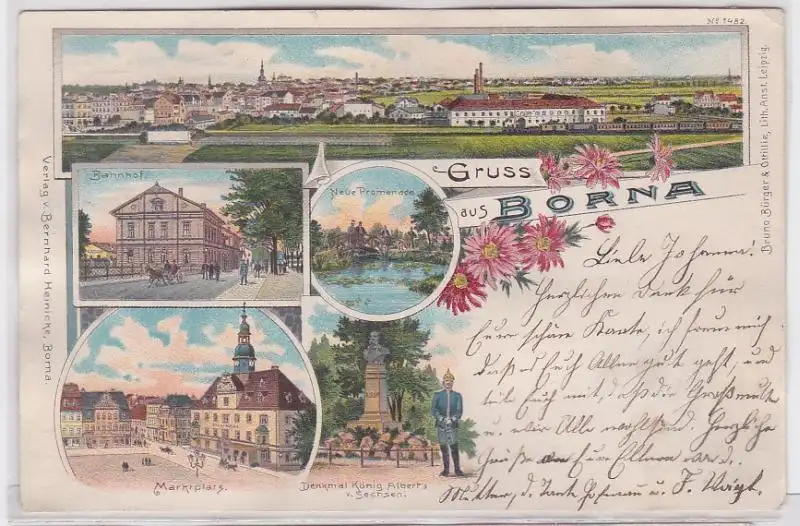 No. 1482.
Gruss
aus BORNA
Bahnhof.
Neue Promenade
Marktplatz.
Denkmal König Albert's
v. Sachsen.
Verlag v. Bernhard Heinicke, Borna.
Bruno Bürger & Ottillie, Lith. Anst. Leipzig.
Liebe Johanna!
Herzlichen Dank für
Eure schöne Karte, ich freue mich
daß es Euch Allen gut geht, und
teile Euch mit, daß die Großmutter
u. wir Alle wohl sind. Herzliche
Grüße an Eure Eltern und
Mutter, d. Tante u. F. Voigt.